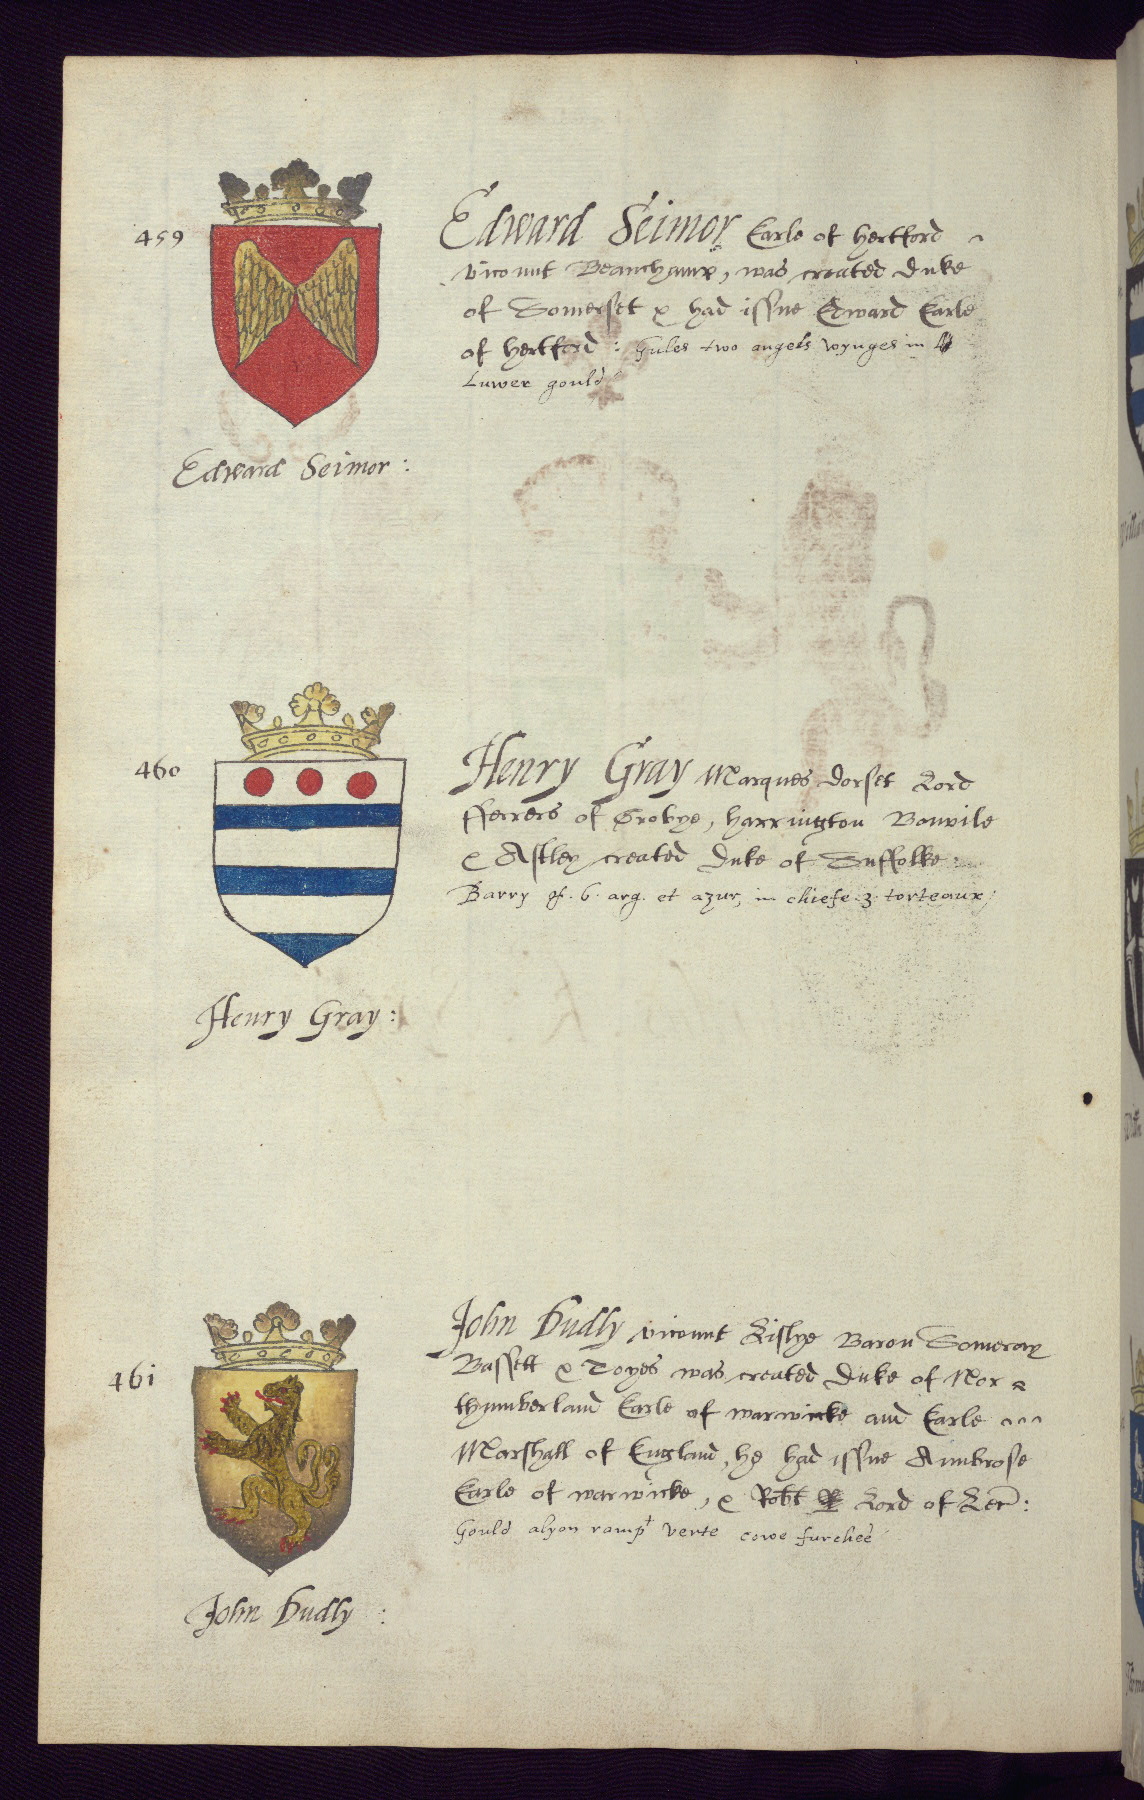 459
Edward Seimor Earle of Hertford
vicount Beauchamp, was created Duke
of Somerset & had issue Edward Earle
of Hertford : Gules two angels wynges in
Luwer gould
Edward Seimor :
460
Henry Gray Marques Dorset Lord
fferrers of Grobye, Harrington Bonvile
& Astley created Duke of Suffolke :
Barry of . 6 . arg. et azur, in chiefe 3 torteaux ;
Henry Gray :
461
John Dudly vicount Lislye Baron Someray
Bassett & Toyes was created Duke of Nor
thumberland Earle of warwicke and Earle
Marshall of England, he had issue Ambrose
Earle of warwicke, & Robt Lord of Leir :
Gould a lyon rampt verte cowe furchee
John Dudly :